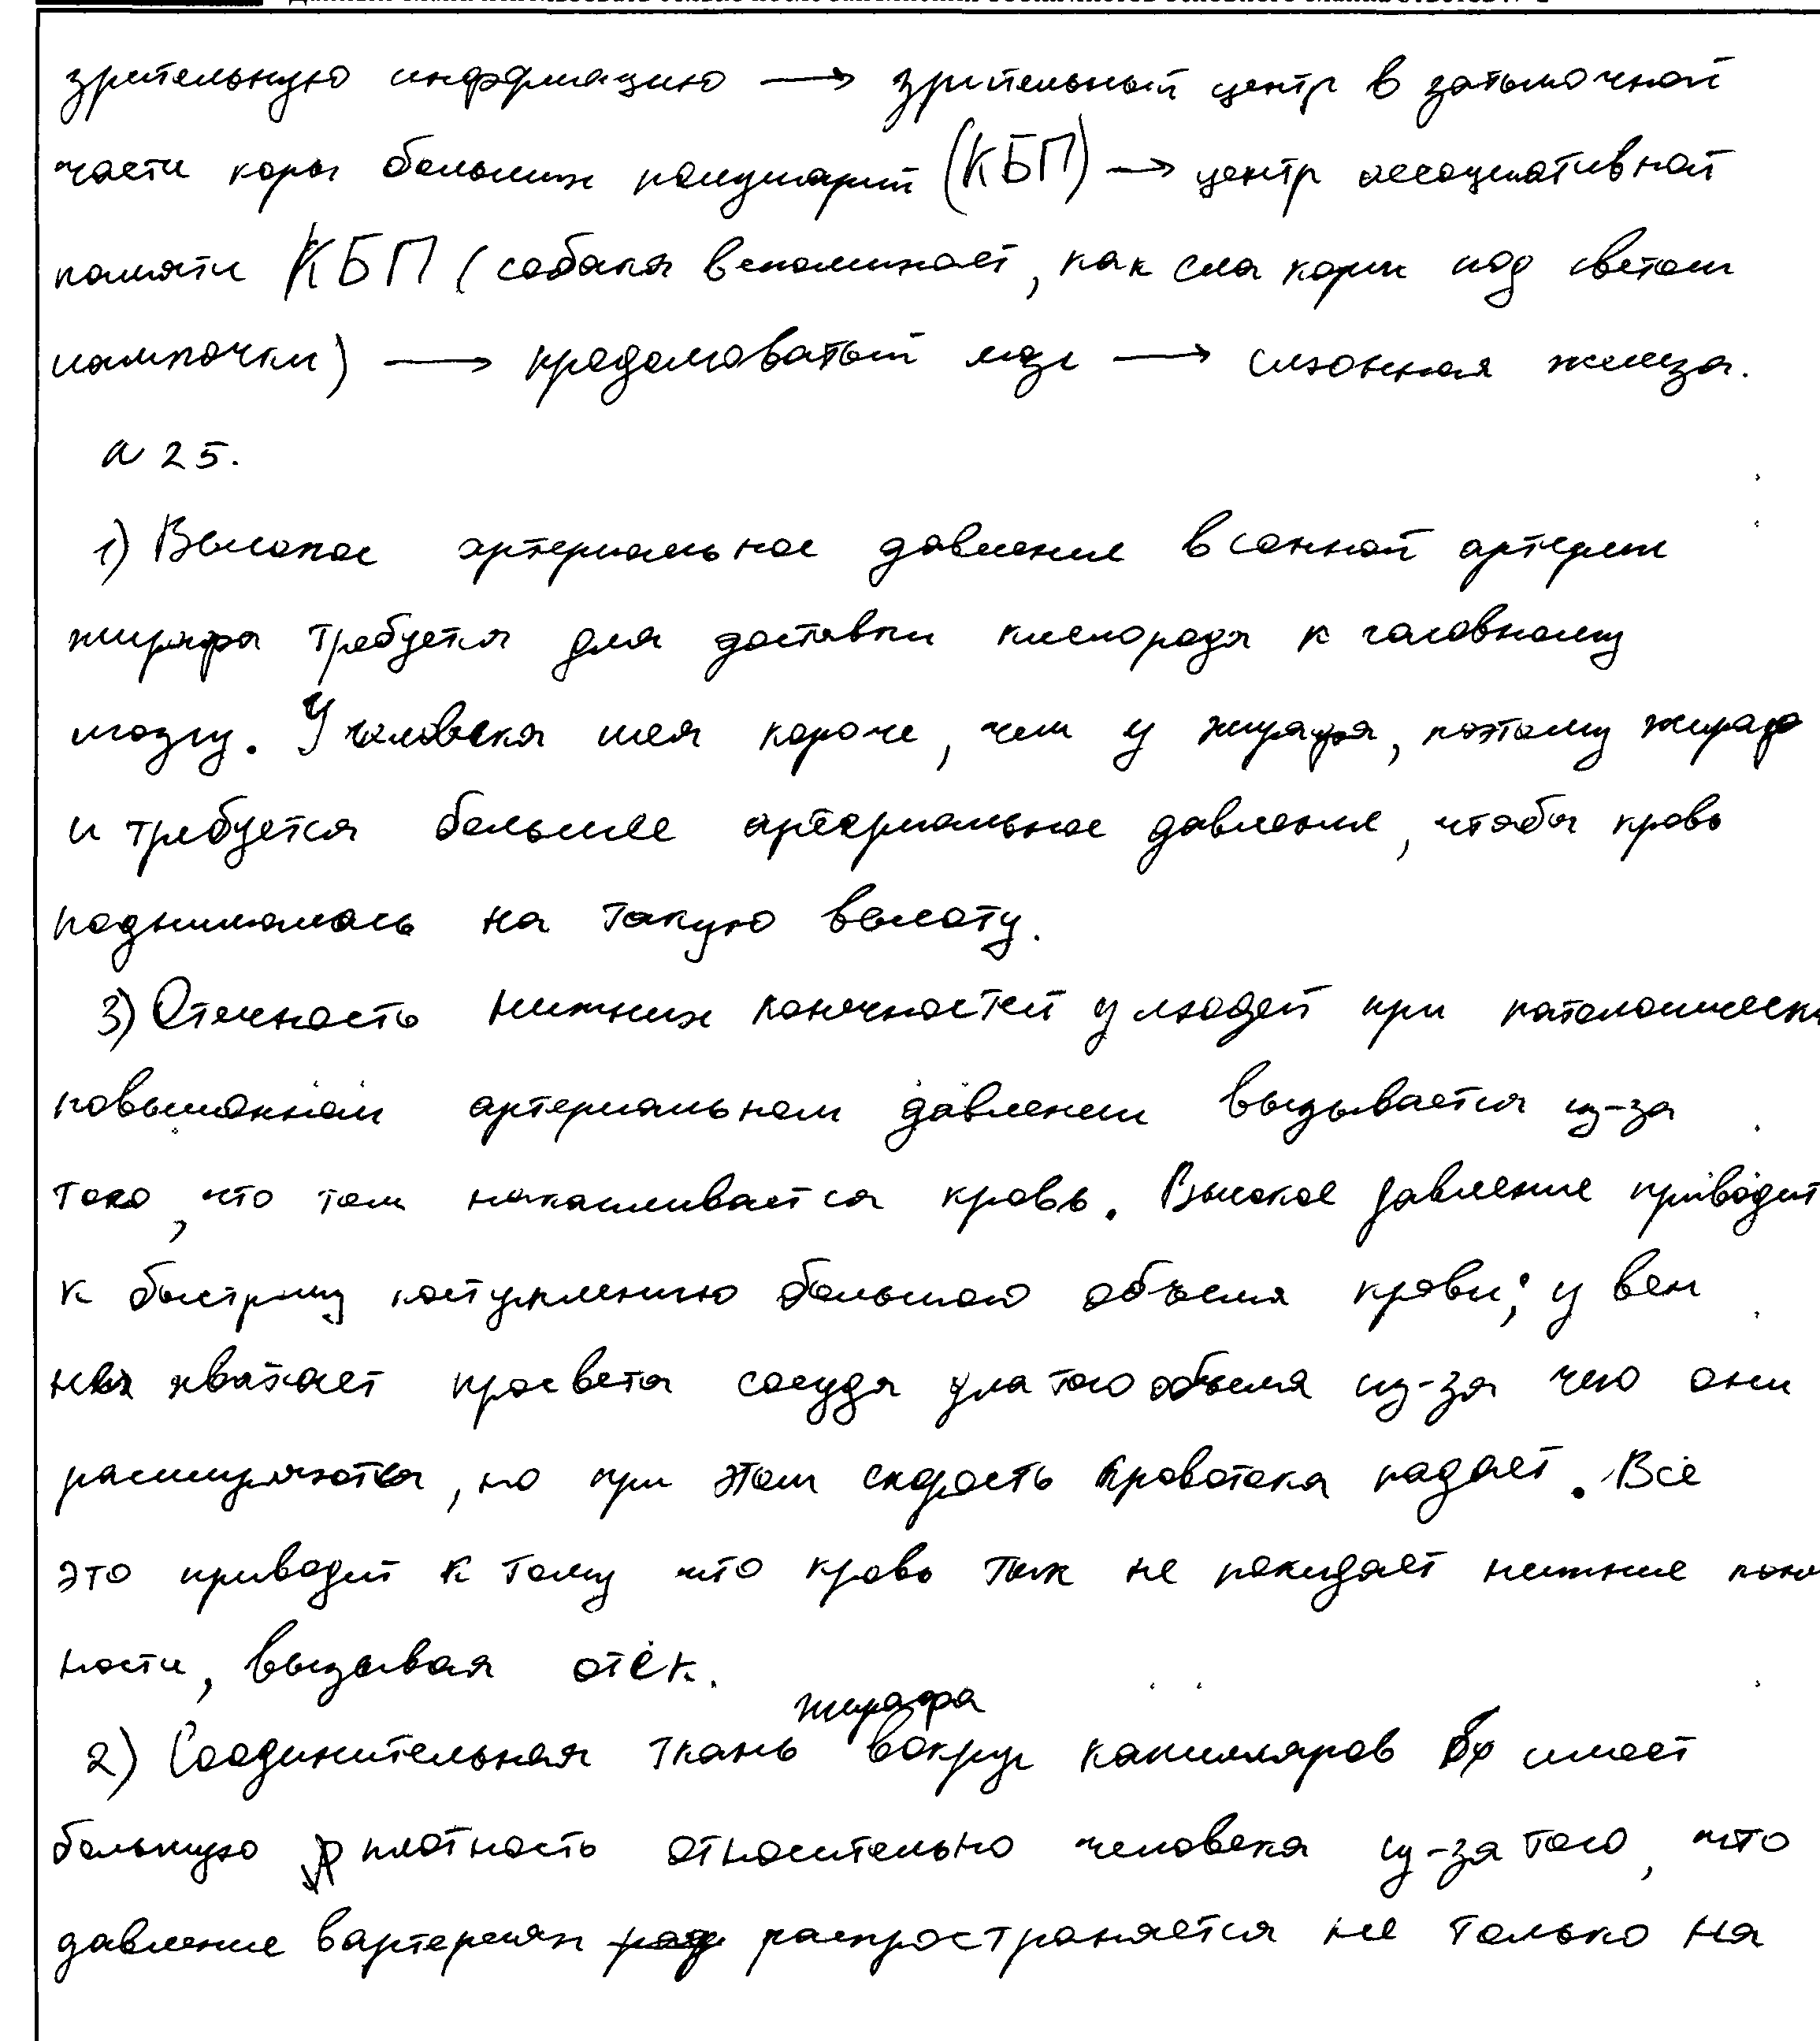 зрительную информацию → зрительный центр в затылочной
части коры больших полушарий (КБП) → центр ассоциативной
памяти КБП (собака вспоминает, как ела корм под светом
лампочки) → продолговатый мозг → слюнная железа.
N 25.
1) Высокое артериальное давление в сонной артерии
жирафа требуется для доставки кислорода к головному
мозгу. У человека шея короче, чем у жирафа, поэтому жираф
и требуется большее артериальное давление, чтобы кровь
поднималась на такую высоту.
3) Отечность нижних конечностей у людей при патологическ
повышенном артериальном давлении вызывается из-за
того, что там накапливается кровь. Высокое давление приводит
к быстрому поступлению большого объема крови; у вен
не хватает просвета сосуда для того объема из-за чего они
расширяются, но при этом скорость кровотока падает. Всё
это приводит к тому что кровь так не покидает нижние коне
ности, вызывая отёк.
жирафа
2) Соединительная ткань вокруг капилляров имеет
большую плотность относительно человека из-за того, что
давление в артериях распространяется не только на